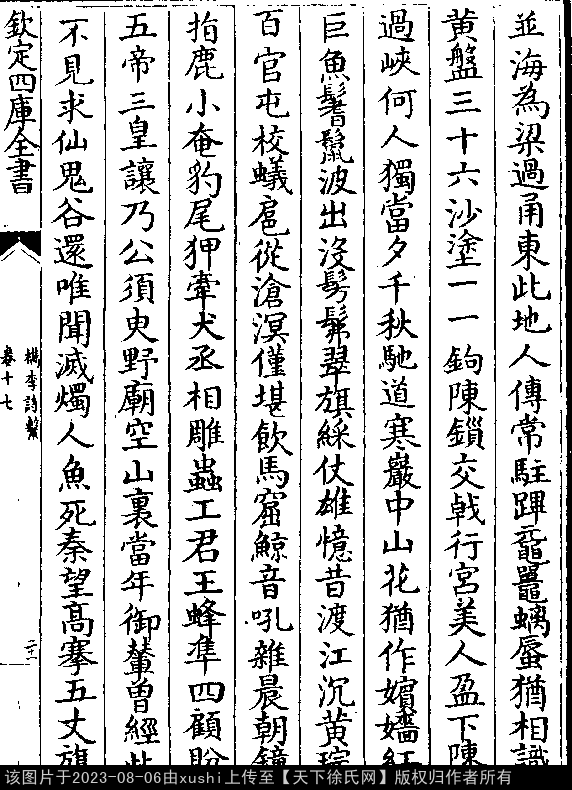 並海為梁過甬東此地人傳常駐蹕黿鼉螭蜃猶相識
黄盤三十六沙塗一一鉤陳鎻交戟行宮美人盈下陳
過峽何人獨當夕千秋馳道寒巖中山花猶作嬪嬙紅
巨魚鬐鬣波出没髣髴翠旗綵仗雄憶昔渡江沉黄琮
百官屯校蟻扈從滄溟僅堪飲馬窟鯨音吼雜晨朝鐘
指鹿小奄豹尾狎牽犬丞相雕蟲工君王蜂凖四顧盼
五帝三皇讓乃公須臾野廟空山裏當年御輦曾經此
不見求仙鬼谷還唯聞滅燭人魚死秦望髙搴五丈旗
欽定四庫全書
檇李詩繫
卷十七
二十二
该图片于2023-08-06由xushi上传至【天下徐氏网】版权归作者所有